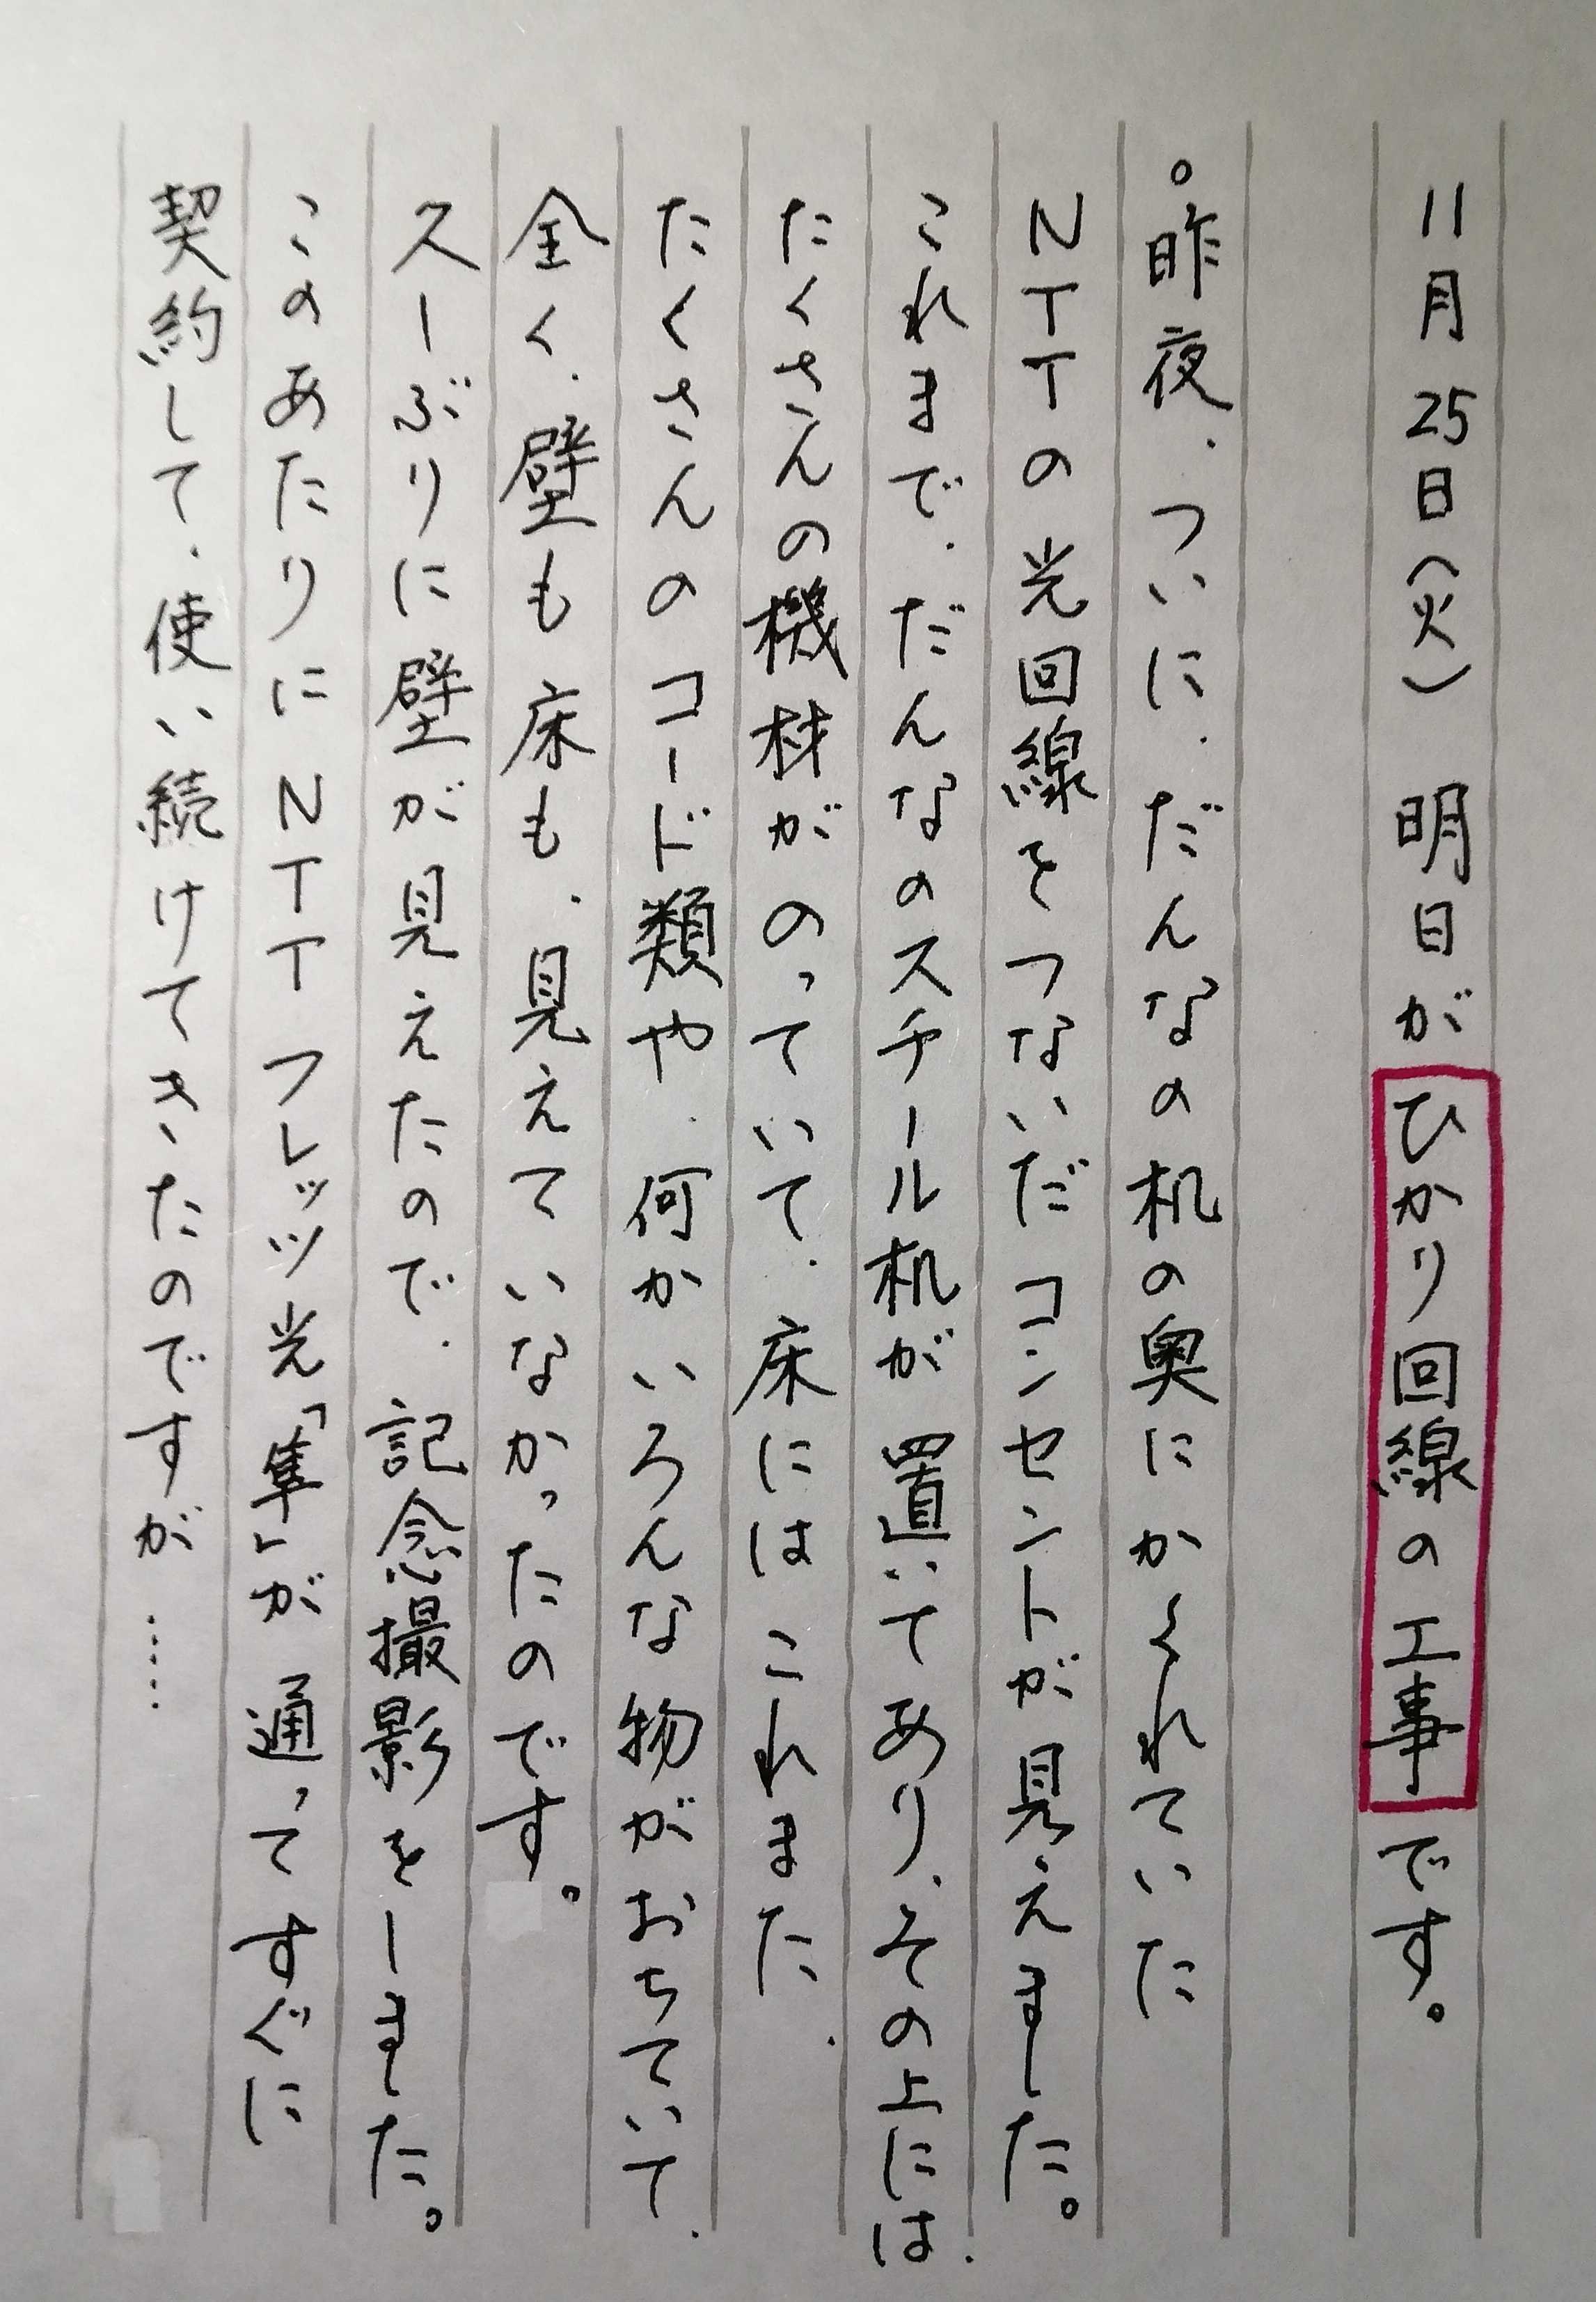 11月25日(火) 明日がひかり回線の工事です。
。昨夜、ついに、だんなの机の奥にかくれていた
NTTの光回線をつないだコンセントが見えました。
これまで、だんなのスチール机が置いてあり、その上には、
たくさんの機材がのっていて、床にはこれまた、
たくさんのコード類や、何かいろんな物がおちていて、
全く、壁も床も、見えていなかったのです。
スーぶりに壁が見えたので、記念撮影をしました。
このあたりにNTTフレッツ光「隼」が通ってすぐに
契約して、使い続けてきたのですが……